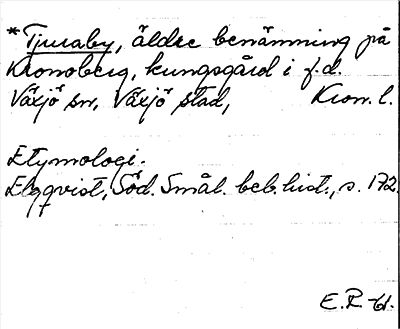 *Tjuraby, äldre benämning på
Kronoberg, kungsgård i f.d.
Växjö sn, Växjö stad, Kron. l.
Etymologi.
Elgqvist, Söd. Smål. beb. hist., s. 172.
E.R. -61.